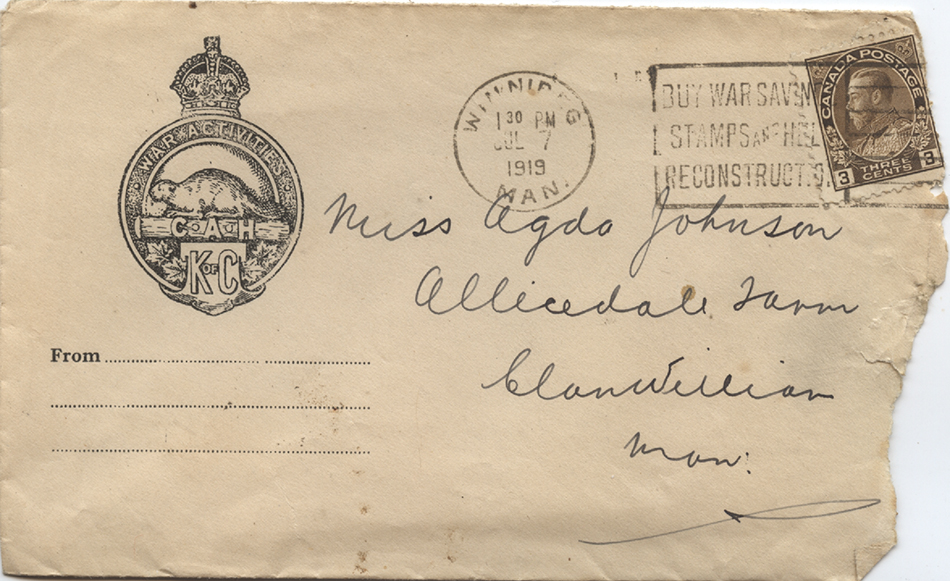 WAR ACTIVITIES
C·A·H
K OF C
WINNIPEG
1 30 PM
JUL 7
1919
MAN.
BUY WAR SAVIN
STAMPS AND HEL
RECONSTRUCTIO
CANADA POSTAGE
3 THREE CENTS 3
Miss Agda Johnson
Allicedale Farm
ClanWilliam
Man.
From